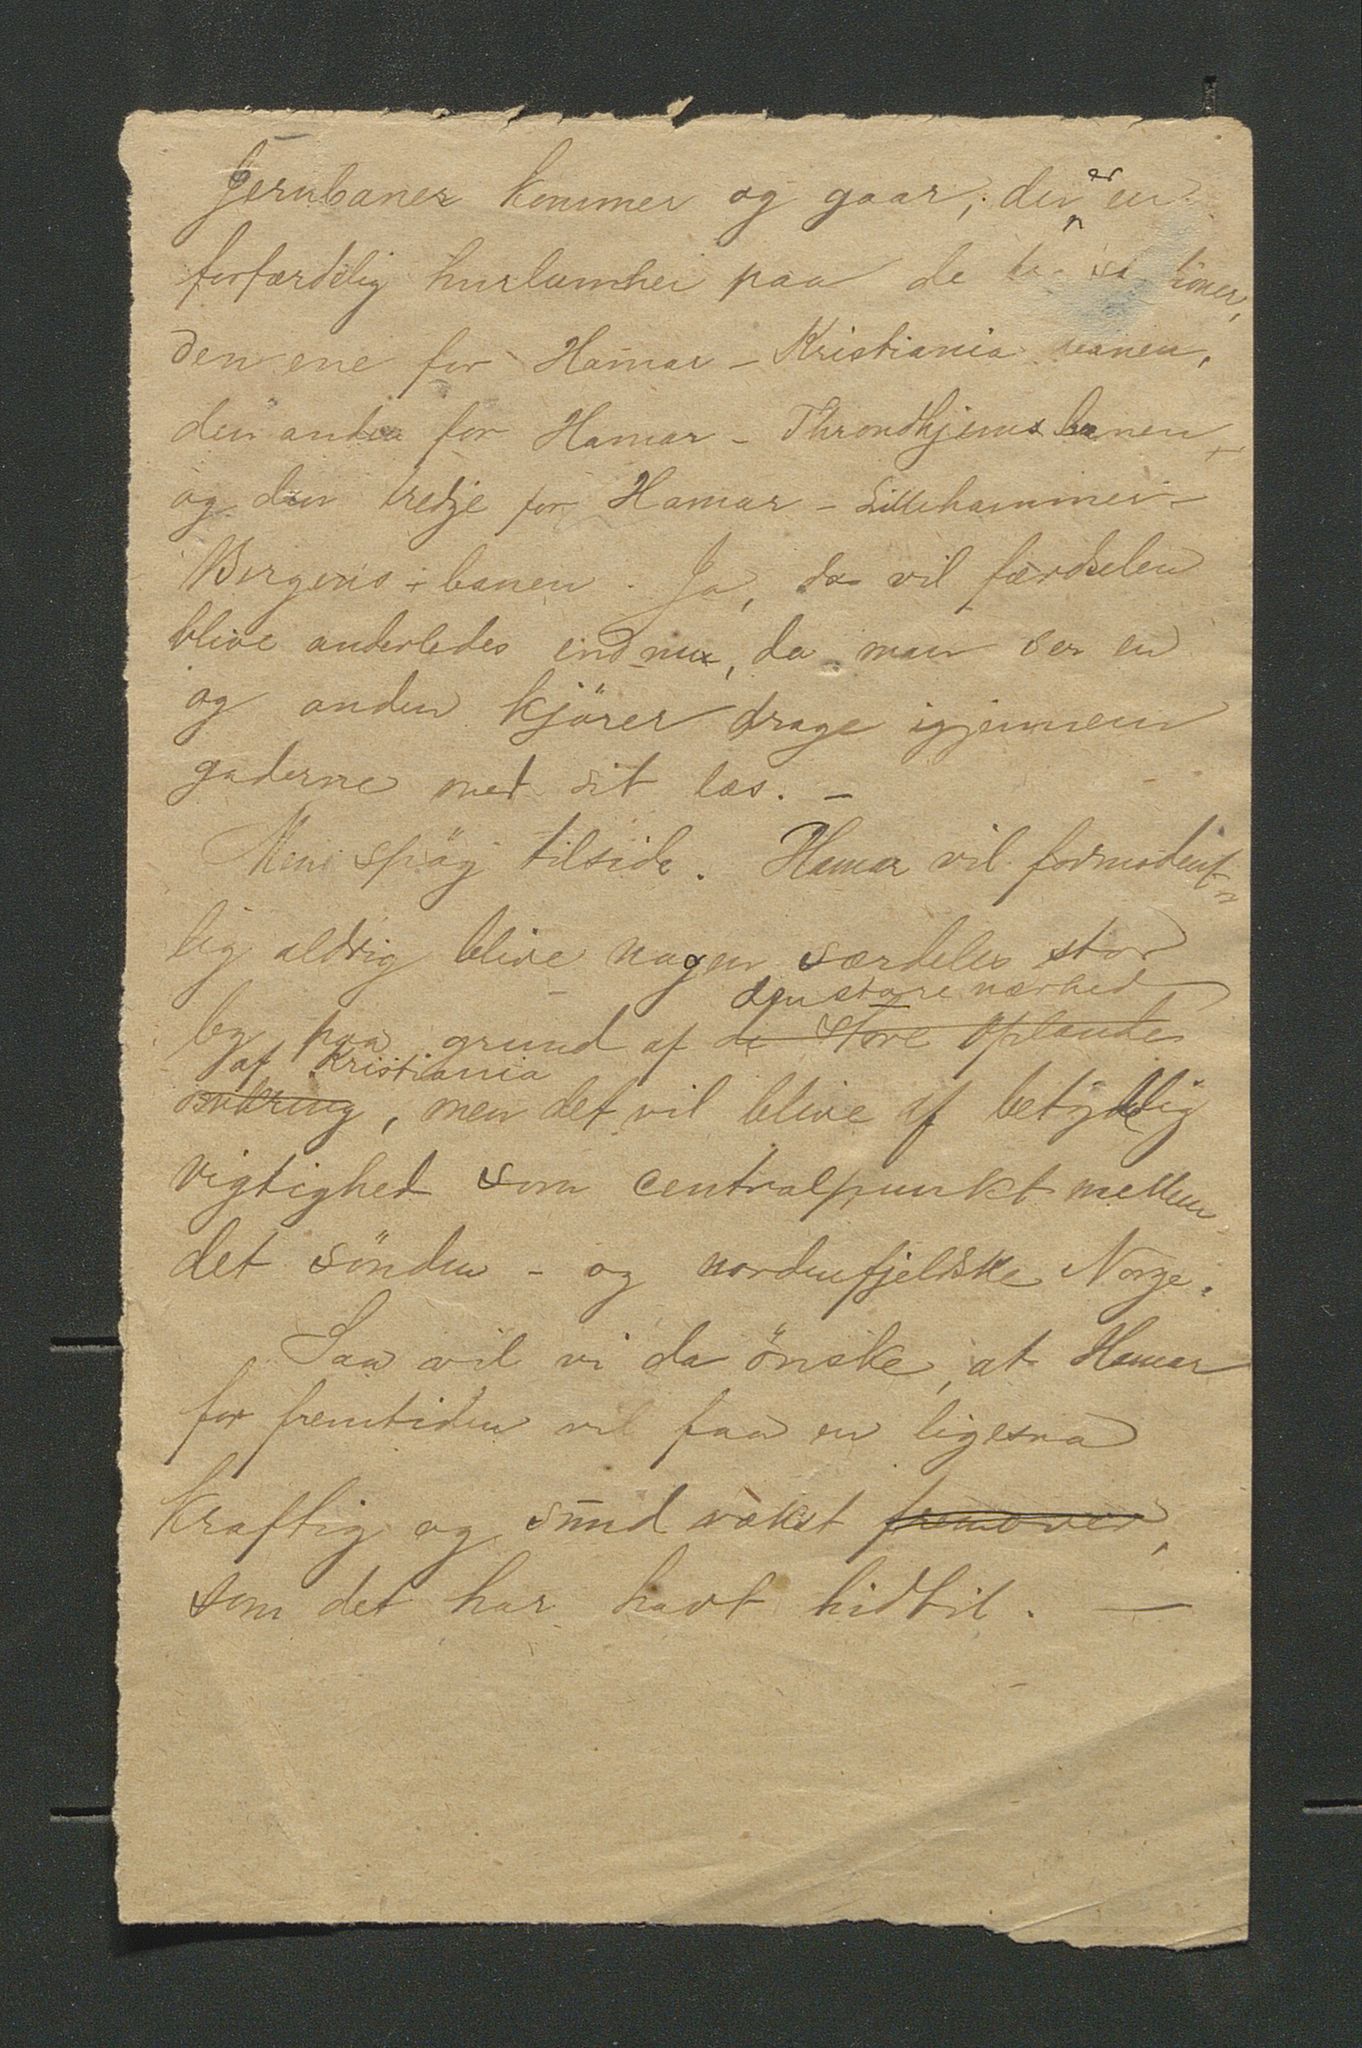 Jernbaner kommer og gaar, der er en
forfærdelig hurlumhei paa de tre stationer,
den ene for Hamar - Kristiania banen,
den anden for Hamar - Throndhjemsbanen,
og den tredje for Hamar - Lillehammer -
Bergens - banen. Ja, da vil færdselen
blive anderledes end nu, da man ser en
og anden kjörer drage igjennem
gaderne med sit læs. -
Men spög tilside. Hamar vil formodent-
lig aldrig blive nogen særdeles stor
den store nærhed
by paa grund af de store oplandes
af Kristiania
omkring, men det vil blive af betydelig
vigtighed som centralpunkt mellem
det sönden - og nordenfjeldske Norge.
Saa vil vi da önske, at Hamar
for fremtiden vil faa en ligesaa
kraftig og sund vækst fremover,
som det har havt hidtil. -